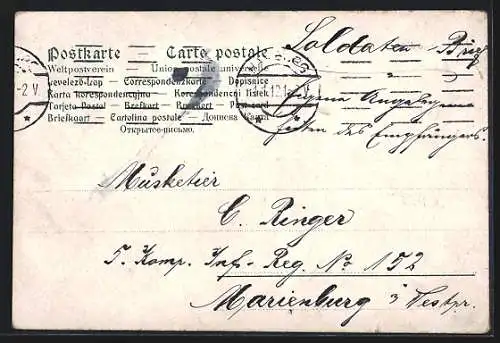 Postkarte — Carte postale
Weltpostverein — Union postale universelle
Levelező-Lap — Correspondenzkarte — Dopisnice
Karta korespondencyjna — Korespondenční lístek
Tarjeta Postal — Brefkort — Brevkort — Post card
Briefkaart — Cartolina postale — Дописна Карта
Открытое письмо.
2
-2 V.
Soldaten Brief
Eigene Angelegen
heiten des Empfängers.
Musketier
C. Ringer
5. Komp. Inf. Reg. No 152
Marienburg i Westpr.